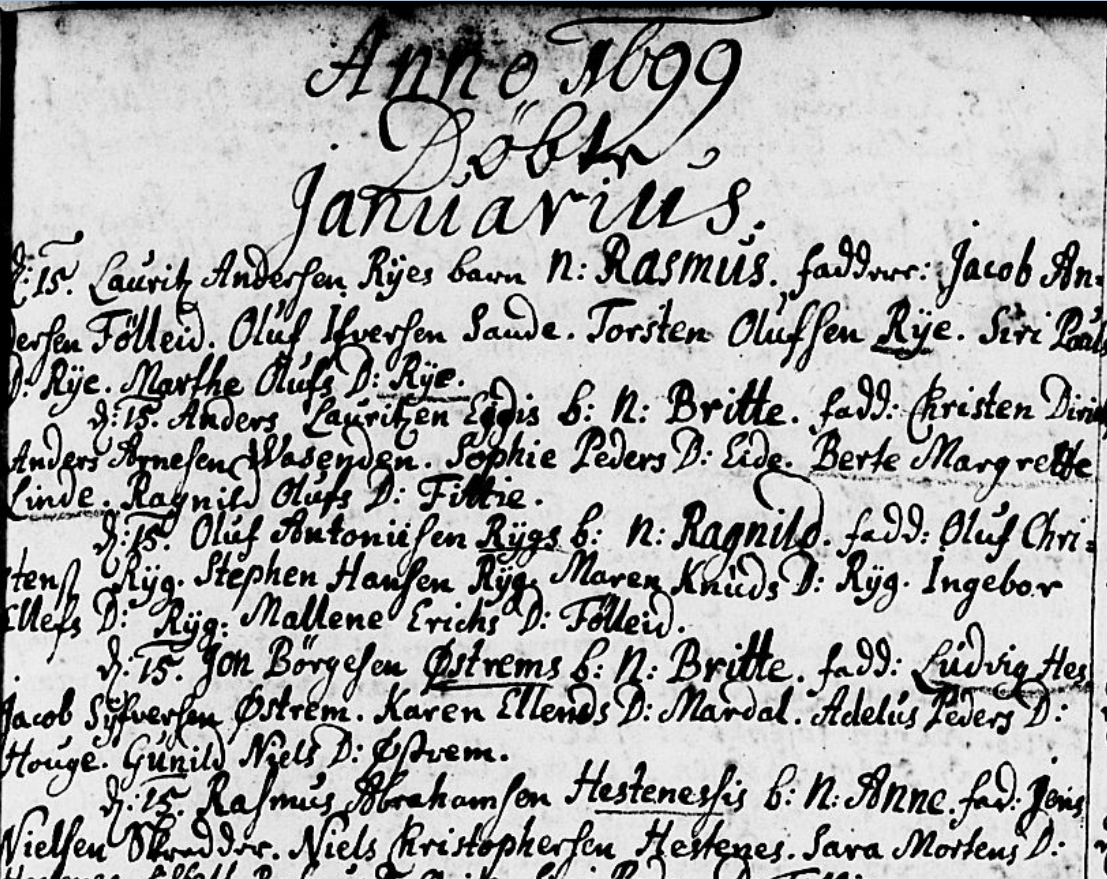 Anno 1699
Döbte
Januarius.
d: 15. Lauritz Andersen Ryes barn N: Rasmus. fadderer: Jacob An-
dersen Fölleid. Oluf Ifversen Sande. Torsten Olufsen Rye. Siri Pouls
D: Rye. Marthe Olufs D: Rye.
d: 15. Anders Lauritzen Eggis b: N: Britte. fadd: Christen
Anders Arnesen Wasenden. Sophie Peders D: Eide. Berte Margrette
Linde. Ragnild Olufs D: Fittie.
d: 15. Oluf Antoniisen Rygs b: N: Ragnild. fadd: Oluf Chri-
stenss Ryg. Stephen Hansen Ryg. Maren Knuds D: Ryg. Ingebor
Ellefs D: Ryg. Mallene Erichs D: Fölleid.
d: 15. Jon Börgesen Østrems b: N: Britte. fadd: Ludvig Hes
Jacob Syfversen Østrem. Karen Ellends D: Mardal. Adelus Peders D:
Houge. Gunild Niels D: Østrem.
d: 15. Rasmus Abrahamsen Hestenessis b: N: Anne. fad: Jens
Nielsen Skredder. Niels Christophersen Hestenes. Sara Mortens D: